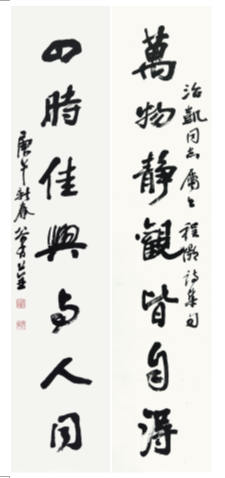 萬物靜觀皆自得
治凱同志屬
程顥詩集句
四時佳興与人同
庚午